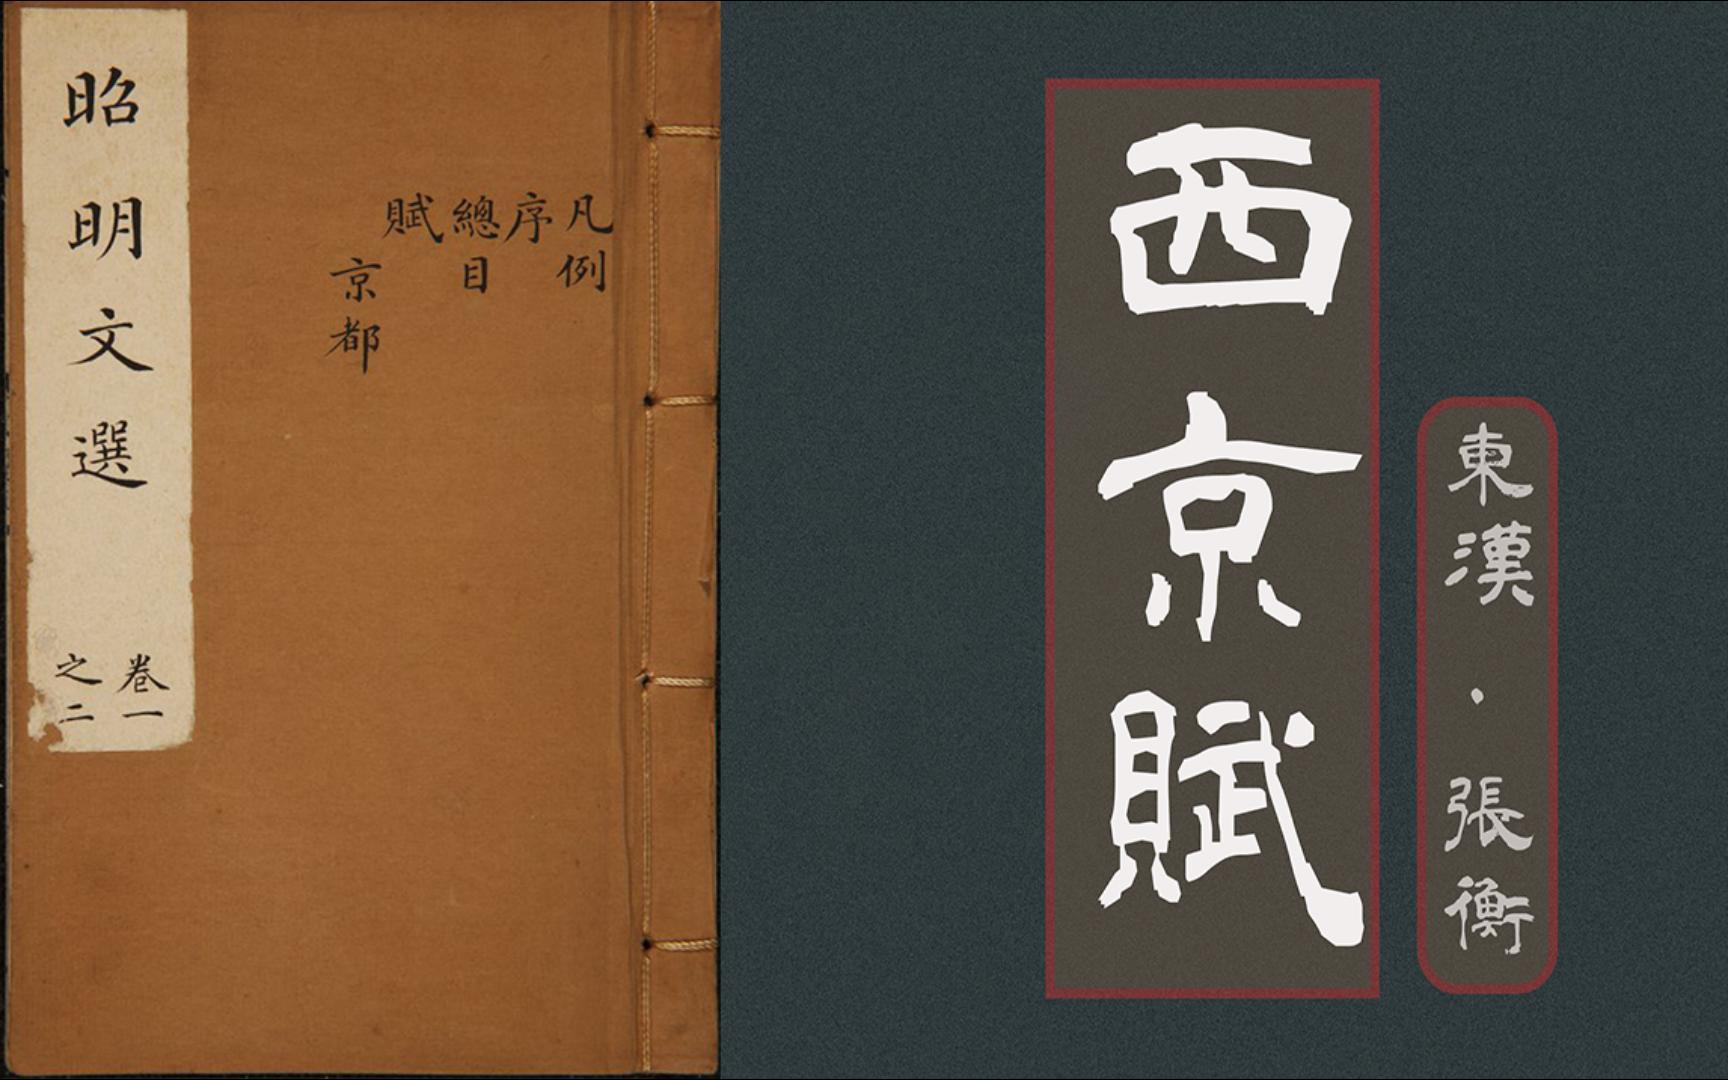 昭明文選
卷一
之二
凡例
序
總目
賦
京都
西京賦
東漢·張衡